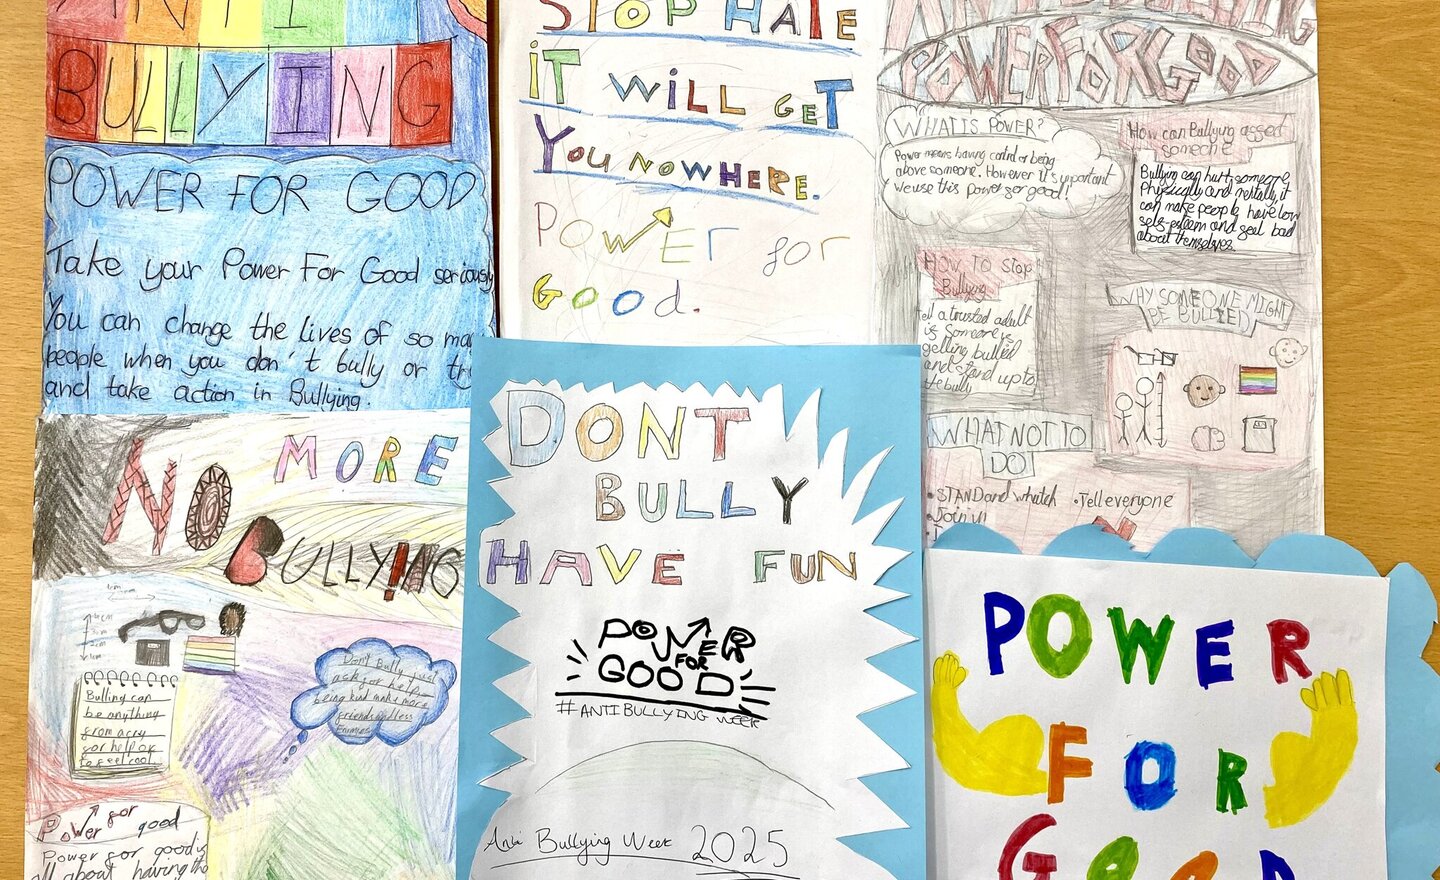 ANTI
BULLYING
POWER FOR GOOD
Take your Power For Good seriously
You can change the lives of so many
people when you don't bully or try
and take action in Bullying.
STOP HATE
IT WILL GET
YOU NOWHERE.
POWER for
GOOD.
POWER FOR GOOD
WHAT IS POWER?
Power means having control or being
above someone. However it's important
we use this power for good!
How can Bullying affect
someone
Bullying can hurt someone
Physically and mentally, it
can make people have low
self-esteem and feel bad
about themselves.
HOW TO Stop
Bullying
Tell a trusted adult
if someone is
getting bullied
and stand up to
the bully
WHY SOMEONE MIGHT
BE BULLIED
WHAT NOT TO
DO
• STAND and whatch
• Join in
• Tell everyone
NO MORE
BULLYING
Bulling can
be anything
from a cry
for help or
to feel cool.
Don't Bully just
ask for help
being kind make more
friends and less
Enimies
Power for
good
Power for good is
all about having the
DONT
BULLY
HAVE FUN
POWER
FOR
GOOD
#ANTIBULLYING WEEK
Anti Bullying Week 2025
POWER
FOR
GOOD